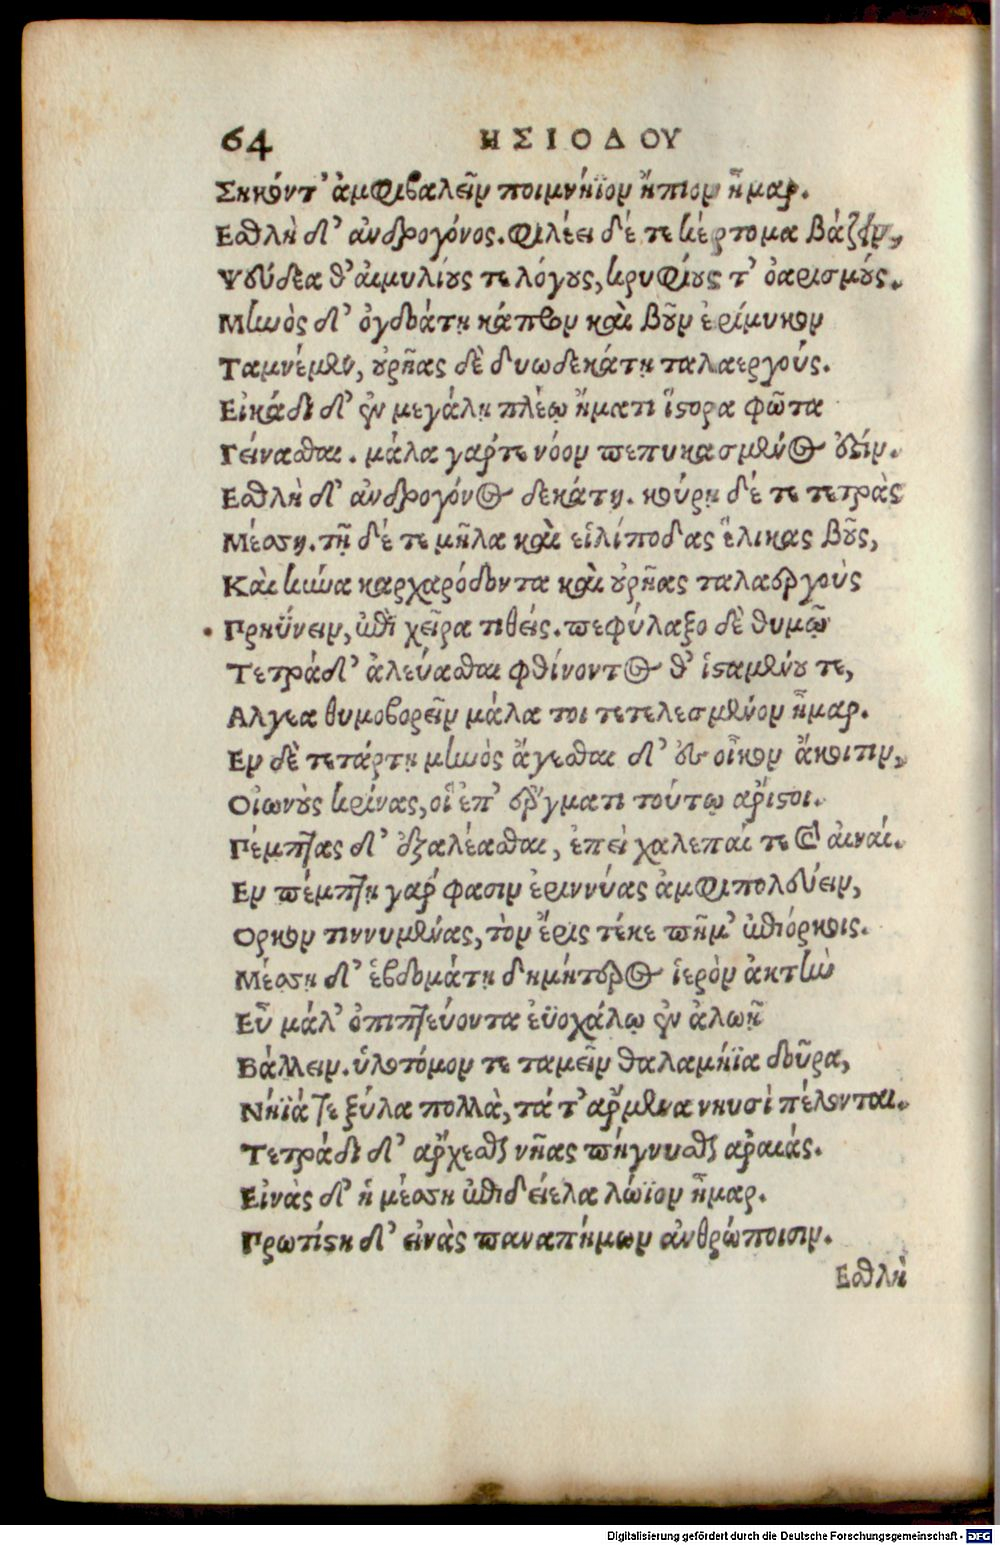 64 ΗΣΙΟΔΟΥ
Σηκόντ' ἀμφιβαλεῖν ποιμνήϊον ἤπιον ἦμαρ.
Εσθλὴ δ' ἀνδρογόνος. φιλέει δέ τε κέρτομα βάζειν,
Ψεύδεα θ' αἱμυλίους τε λόγους, κρυφίους τ' ὀαρισμούς.
Μηνὸς δ' ὀγδοάτῃ κάπρον καὶ βοῦν ἐρίμυκον
Ταμνέμεν, οὐρῆας δὲ δυωδεκάτῃ ταλαεργούς.
Εἰκάδι δ' ἐν μεγάλῃ πλέῳ ἤματι ἵστορα φῶτα
Γείνασθαι. μάλα γάρ τε νόον πεπυκασμένος ἐστίν.
Εσθλὴ δ' ἀνδρογόνος δεκάτη. κούρῃ δέ τε τετρὰς
Μέσση. τῇ δέ τε μῆλα καὶ εἰλίποδας ἕλικας βοῦς,
Καὶ κύνα καρχαρόδοντα καὶ οὐρῆας ταλαεργοὺς
Πρηΰνειν, ἐπὶ χεῖρα τιθείς. πεφύλαξο δὲ θυμῷ
Τετράδ' ἀλεύασθαι φθίνοντος θ' ἱσταμένου τε,
Αλγεα θυμοβορεῖν μάλα τοι τετελεσμένον ἦμαρ.
Εν δὲ τετάρτῃ μηνὸς ἄγεσθαι δ' ἐς οἶκον ἄκοιτιν,
Οἰωνοὺς κρίνας, οἳ ἐπ' ἔργματι τούτῳ ἄριστοι.
Πέμπτας δ' ἐξαλέασθαι, ἐπεὶ χαλεπαί τε καὶ αἰναί.
Εν πέμπτῃ γάρ φασιν ἐριννύας ἀμφιπολεύειν,
Ορκον τιννυμένας, τὸν ἔρις τέκε πῆμ' ἐπιόρκοις.
Μέσσῃ δ' ἑβδομάτῃ δημήτερος ἱερὸν ἀκτὴν
Εὖ μάλ' ὀπιπτεύοντα ἐϋοχάλῳ ἐν ἀλωῇ
Βάλλειν. ὑλοτόμον τε ταμεῖν θαλαμήϊα δοῦρα,
Νήϊά τε ξύλα πολλὰ, τά τ' ἄρμενα νηυσὶ πέλονται.
Τετράδι δ' ἄρχεσθαι νῆας πήγνυσθαι ἀραιάς.
Εἰνὰς δ' ἡ μέσση ἐπὶ δείελα λώϊον ἦμαρ.
Πρωτίστη δ' εἰνὰς παναπήμων ἀνθρώποισιν.
Εσθλὴ
Digitalisierung gefördert durch die Deutsche Forschungsgemeinschaft - DFG